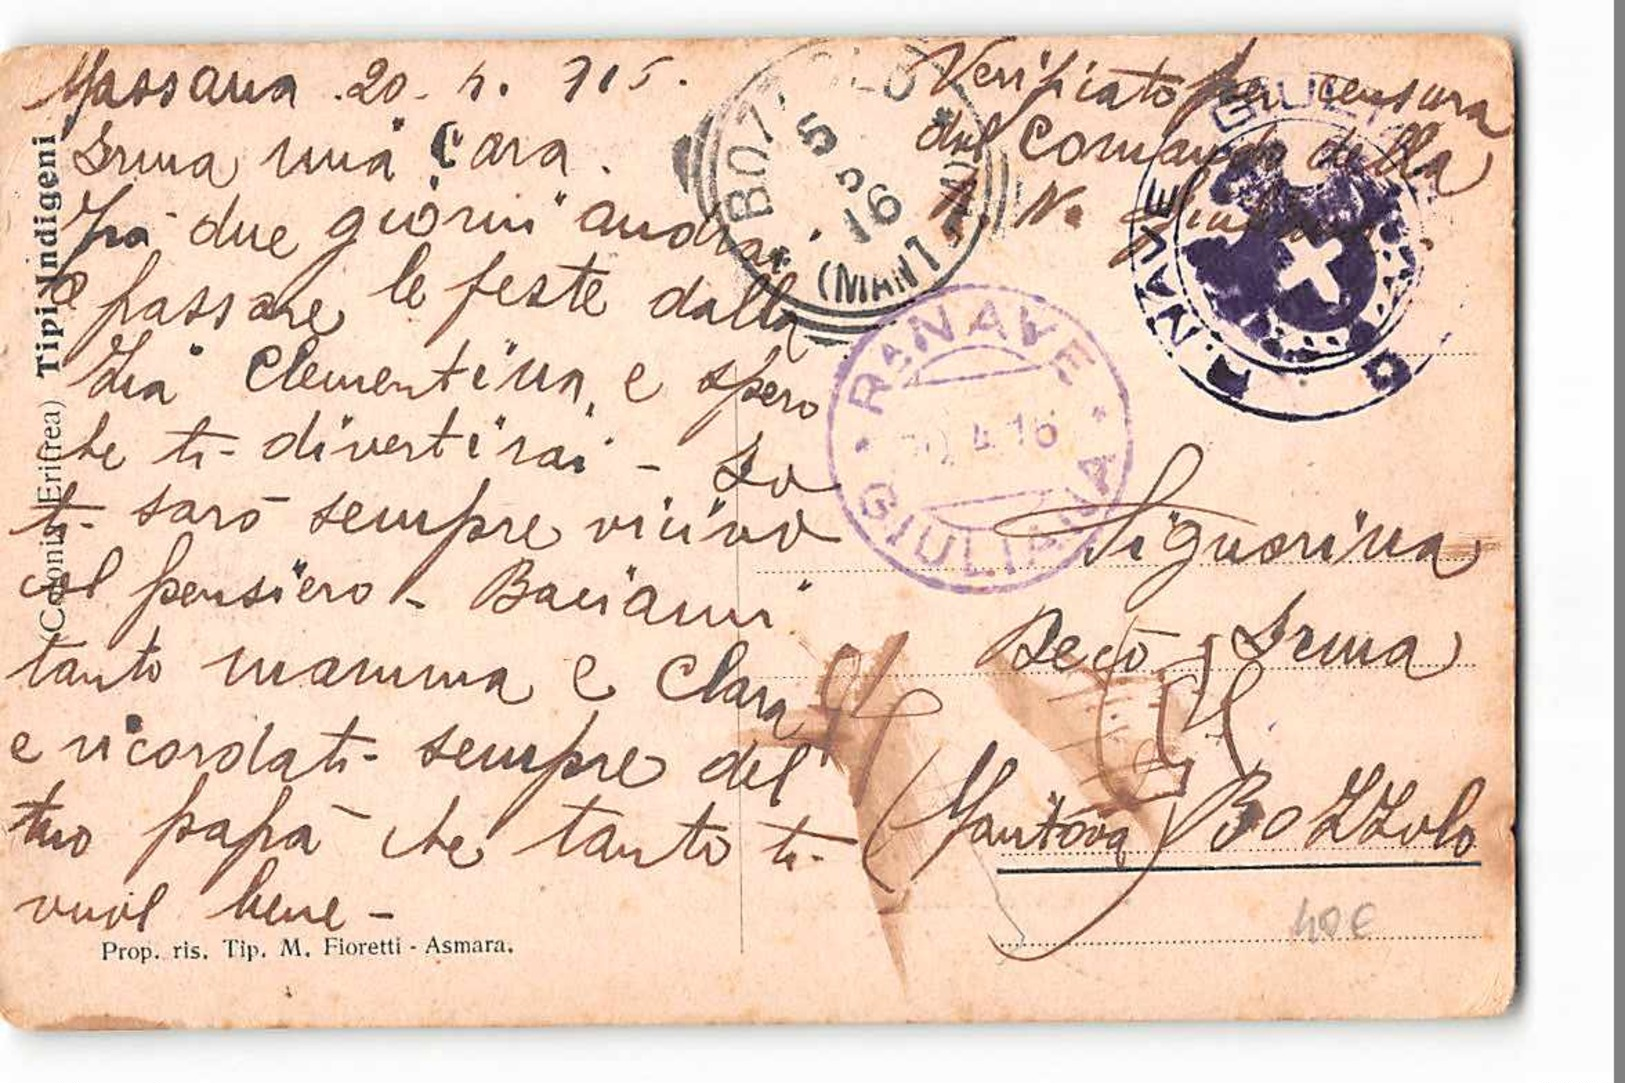 Massaua 20. 4. 915.
Irma mia Cara.
Fra due giorni andrai
a passare le feste dalla
Zia Clementina, e spero
che ti divertirai - Io
ti sarò sempre vicino
col pensiero - Baciami
tanto mamma e Clara
e ricordati sempre del
tuo papà che tanto ti
vuol bene -
Prop. ris. Tip. M. Fioretti - Asmara.
(Colonia Eritrea) Tipi Indigeni
BOZZOLO
5 5 16
(MANTOVA)
Verificato per censura
dal Comando della
R. N. Giuliana
R. NAVE GIULIANA
R. NAVE
20 4 16
GIULIANA
Signorina
Irma
(Mantova) Bozzolo
40€